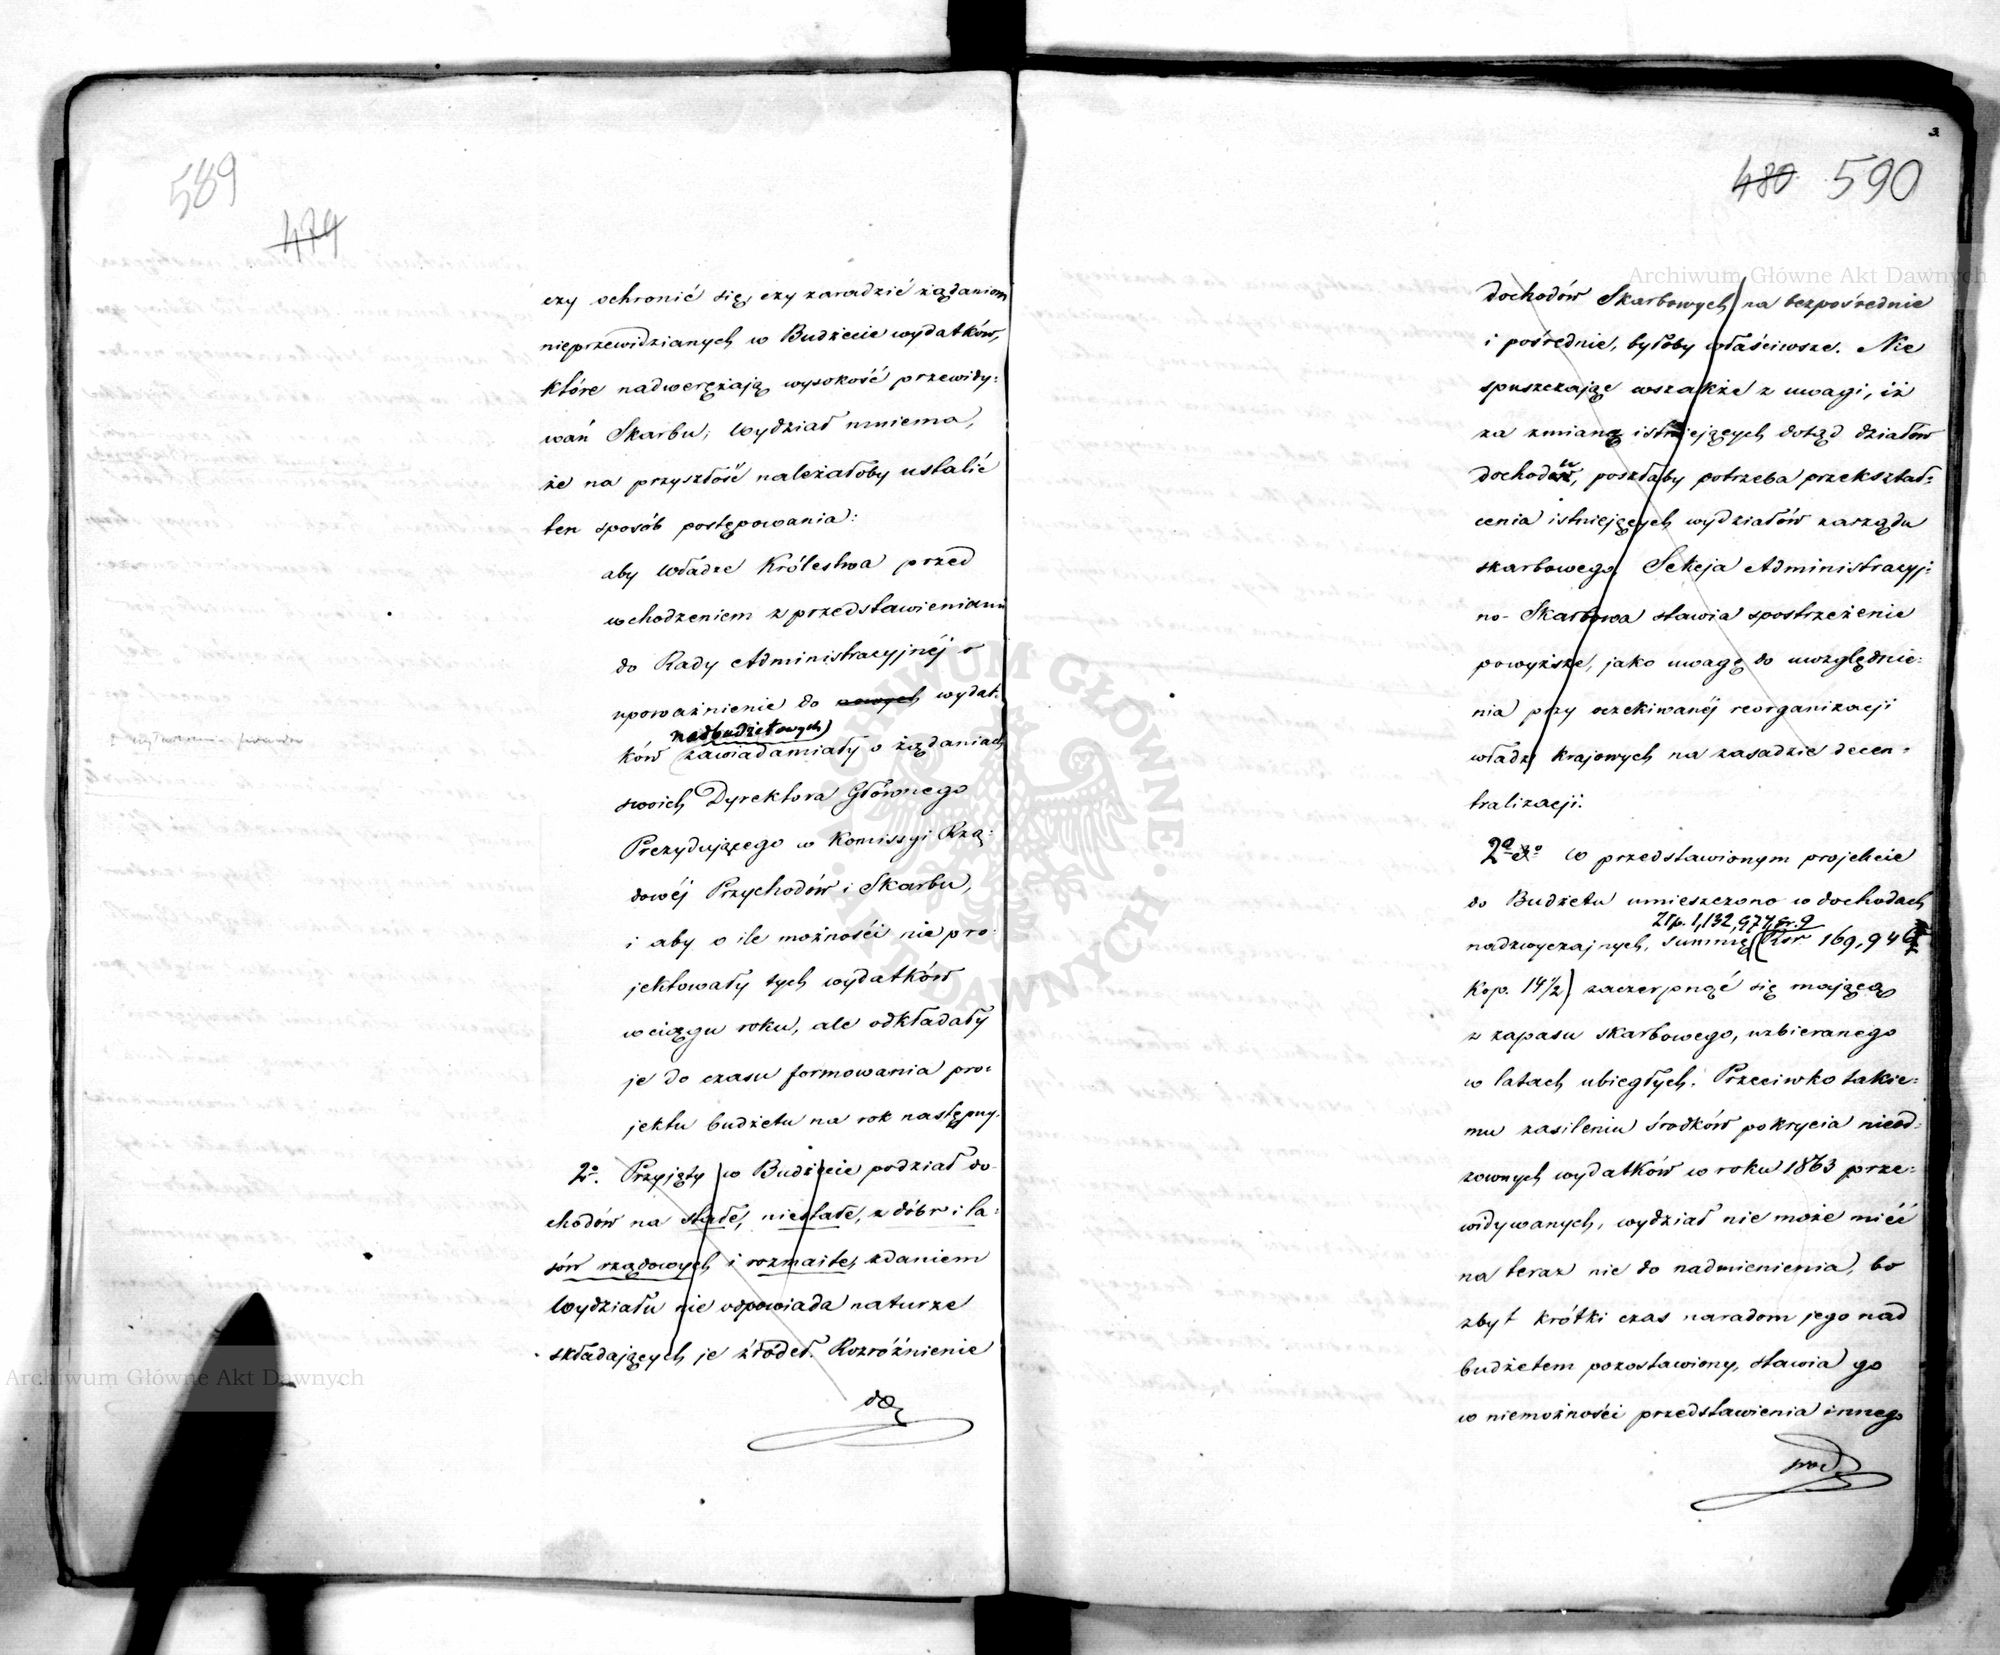 589
479
czy ochronić się, czy zaradzić żądaniom
nieprzewidzianych w Budżecie wydatków,
które nadwerężają wysokość przewidy:
wań Skarbu; Wydział mniema,
że na przyszłość należałoby ustalić
ten sposób postępowania:
aby Władze Królestwa przed
wchodzeniem z przedstawieniami
do Rady Administracyjnéj o
upoważnienie do nowych wydat:
nadbudżetowych)
ków zawiadamiały o żądaniach
swoich Dyrektora Głównego
Prezydującego w Komissyi Rzą:
dowéj Przychodów i Skarbu,
i aby o ile możności nie pro:
jektowały tych wydatków
w ciągu roku, ale odkładały
je do czasu formowania pro:
jektu budżetu na rok następny.
2o. Przyjęty w Budżecie podział do-
chodów na stałe, niestałe, z dóbr i la:
sów rządowych i rozmaite, zdaniem
Wydziału nie odpowiada naturze
składających je źródeł. Rozróżnienie
do
3.
480 590
dochodów Skarbowych na bezpośrednie
i pośrednie, byłoby właściwsze. Nie
spuszczając wszakże z uwagi, iż
za zmianą istniejących dotąd działów
dochodu, poszłaby potrzeba przekształ:
cenia istniejących wydziałów zarządu
skarbowego, Sekcja Administracyj:
no-Skarbowa stawia spostrzeżenie
powyższe, jako uwagę do uwzględnie:
nia przy oczekiwanéj reorganizacji
władz krajowych na zasadzie decen:
tralizacji.
2o W przedstawionym projekcie
do Budżetu umieszczono w dochodach
Złp. 1,132,977 gr. 9
nadzwyczajnych, summę (Rsr 169,946
Kop. 14½) zaczerpnąć się mającą
z zapasu skarbowego, uzbieranego
w latach ubiegłych. Przeciwko takie:
mu zasileniu środków pokrycia nieod:
zownych wydatków w roku 1863 prze:
widywanych, wydział nie może mieć
na teraz nic do nadmienienia, bo
zbyt krótki czas naradom jego nad
budżetem pozostawiony, stawia go
w niemożności przedstawienia innego
Archiwum Główne Akt Dawnych
Archiwum Główne Akt Dawnych
ARCHIWUM GŁÓWNE AKT DAWNYCH